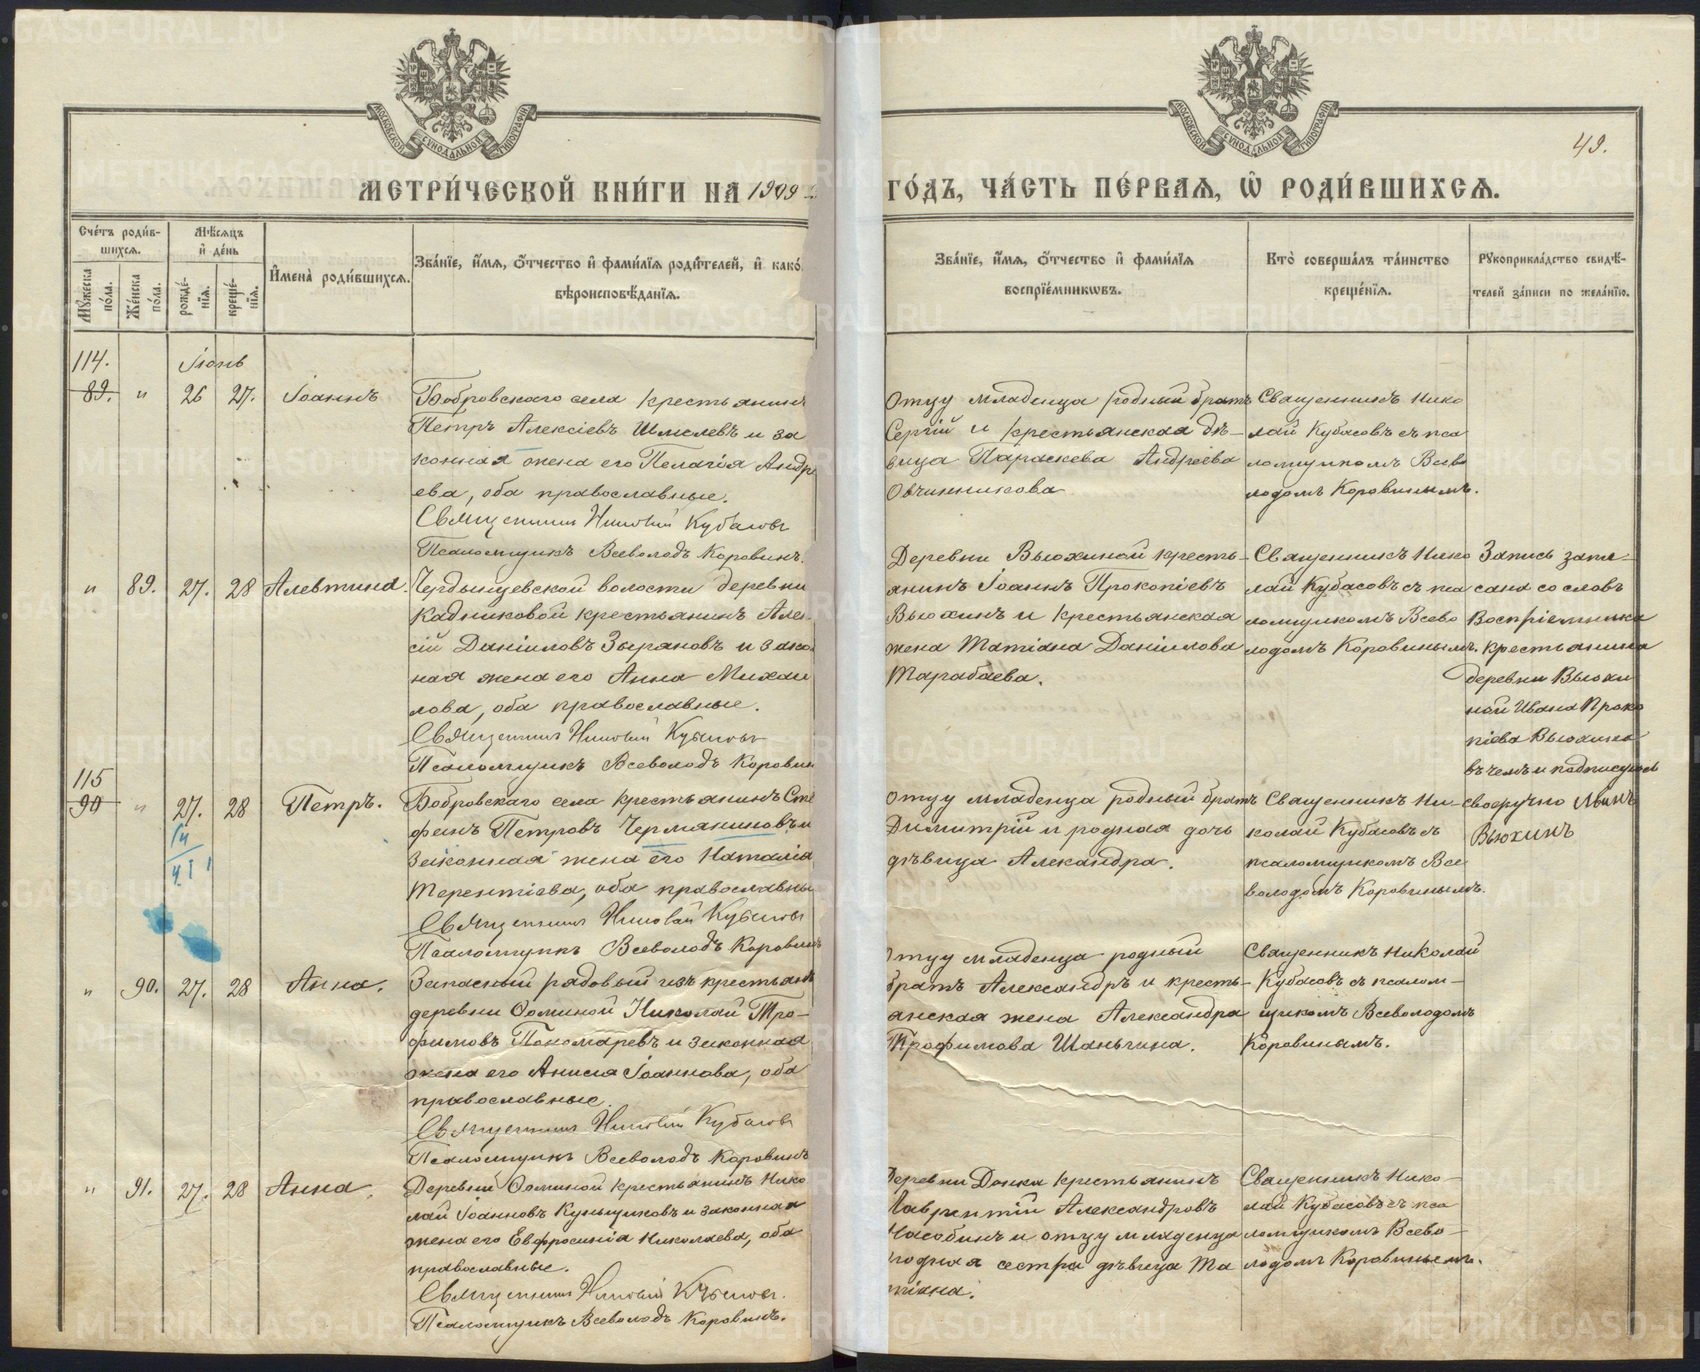 49.
МЕТРИ́ЧЕСКОЙ КНИ́ГИ НА 1909
ГО́ДЪ, ЧА́СТЬ ПЕ́РВАЯ, Ѡ РОДИ́ВШИХСЯ.
Сче́тъ роди́в-
шихся.
Мѣ́сяцъ
и̂ де́нь
Мꙋ́жеска
по́ла.
Же́нска
по́ла.
рожде́-
нїя.
креще́-
нїя.
И̂мена̀ роди́вшихся.
Зва́нїе, и̂́мя, ѻ̂́тчество и̂ фами́лїя роди́телей, и̂ како́
вѣроисповѣ́данїя.
Зва́нїе, и̂́мя, ѻ̂́тчество и̂ фами́лїя
воспрїе́мникѡвъ.
Кто̀ соверша́лъ та́инство
креще́нїя.
Рꙋкоприкла́дство свидѣ́-
телей за́писи по жела́нїю.
114.
Іюнь
89. " 26 27. Іоаннъ
Бобровскаго села крестьянинъ
Петръ Алексіевъ Шмелевъ и за
конная жена его Пелагія Андре
ева, оба православные.
Священникъ Николай Кубасовъ
Псаломщикъ Всеволодъ Коровинъ.
Отцу младенца родный братъ
Сергій и крестьянская дѣ-
вица Параскева Андреева
Овчинникова
Священникъ Нико
лай Кубасовъ съ пса
ломщикомъ Всево
лодомъ Коровинымъ.
" 89. 27. 28 Алевтина.
Чердынцевской волости деревни
Кадниковой крестьянинъ Алек
сій Даніиловъ Зыряновъ и закон
ная жена его Анна Михаи
лова, оба православные.
Священникъ Николай Кубасовъ
Псаломщикъ Всеволодъ Коровин
Деревни Вьюхиной кресть-
янинъ Іоаннъ Прокопіевъ
Вьюхинъ и крестьянская
жена Матіана Даніилова
Тарабаева.
Священникъ Нико
лай Кубасовъ съ пса
ломщикомъ Всево
лодомъ Коровинымъ.
Запись запи
сана со словъ
Воспріемника
крестьянина
деревни Вьюхи
ной Ивана Проко
піева Вьюхина
въ чемъ и подписуюсь
своеручно Иванъ
Вьюхинъ
115
90 " 27. 28 Петръ.
Бобровскаго села крестьянинъ Сте
фанъ Петровъ Чермяниновъ и
законная жена его Наталія
Терентіева, оба православны
Священникъ Николай Кубасовъ
Псаломщикъ Всеволодъ Коровинъ
Отцу младенца родный братъ
Димитрій и родная дочь
дѣвица Александра.
Священникъ Ни-
колай Кубасовъ съ
псаломщикомъ Все
володомъ Коровинымъ.
" 90. 27. 28 Анна.
Запасный рядовый изъ крестьянъ
деревни Ѳоминой Николай Тро-
фимовъ Пономаревъ и законная
жена его Анисія Іоаннова, оба
православные.
Священникъ Николай Кубасовъ
Псаломщикъ Всеволодъ Коровинъ
Отцу младенца родный
братъ Александръ и кресть-
янская жена Александра
Трофимова Шаньгина.
Священникъ Николай
Кубасовъ съ псалом-
щикомъ Всеволодомъ
Коровинымъ.
" 91. 27. 28 Анна.
Деревни Ѳоминой крестьянинъ Нико
лай Іоанновъ Кунщиковъ и законная
жена его Евфросинія Николаева, оба
православные.
Священникъ Николай Кубасовъ.
Псаломщикъ Всеволодъ Коровинъ.
Деревни крестьянинъ
Лаврентій Александровъ
и отцу младенца
родная сестра дѣвица Та
тіана.
Священникъ Нико-
лай Кубасовъ съ пса
ломщикомъ Всево-
лодомъ Коровинымъ.